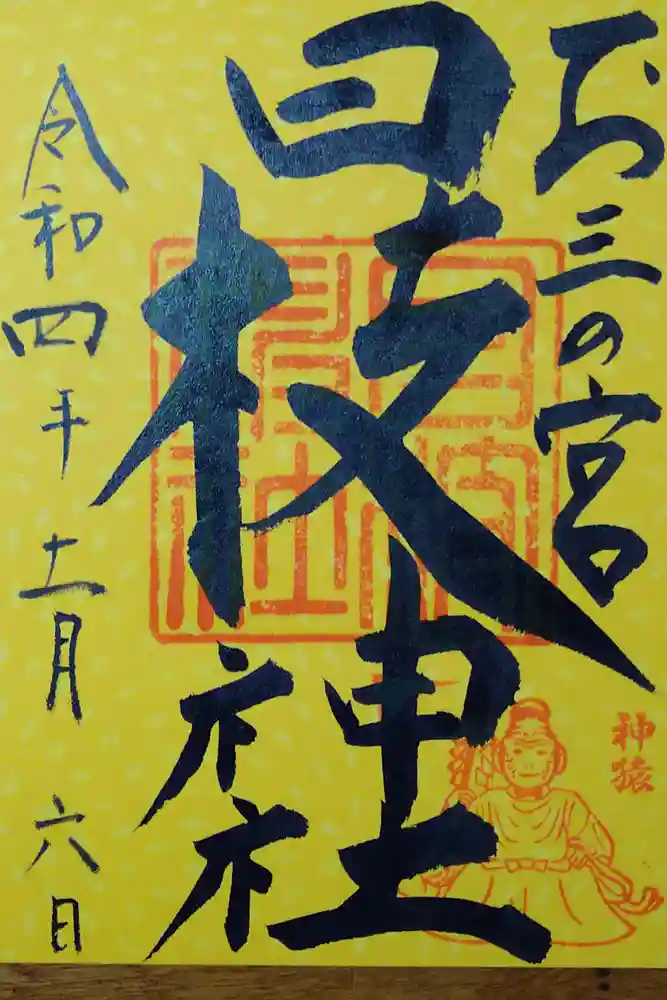 お三の宮
日枝神社
令和四年十一月六日
神猿